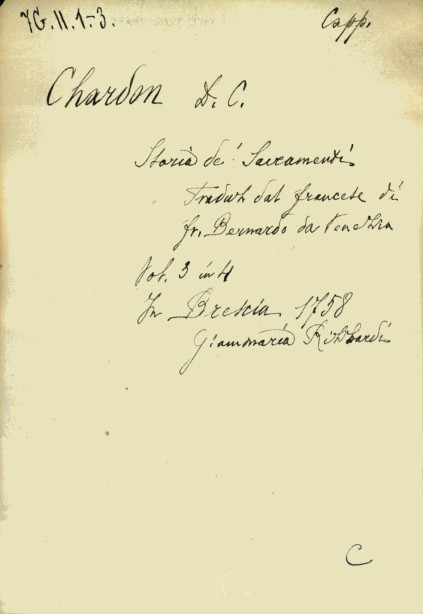 7G.II.1-3.
Capp.
Chardon D. C.
Storia de' Sacramenti
Tradott dal francese di
fr. Bernardo da Venezia
Vol. 3 in 4
In Brescia 1758
Giammaria Rizzardi
C